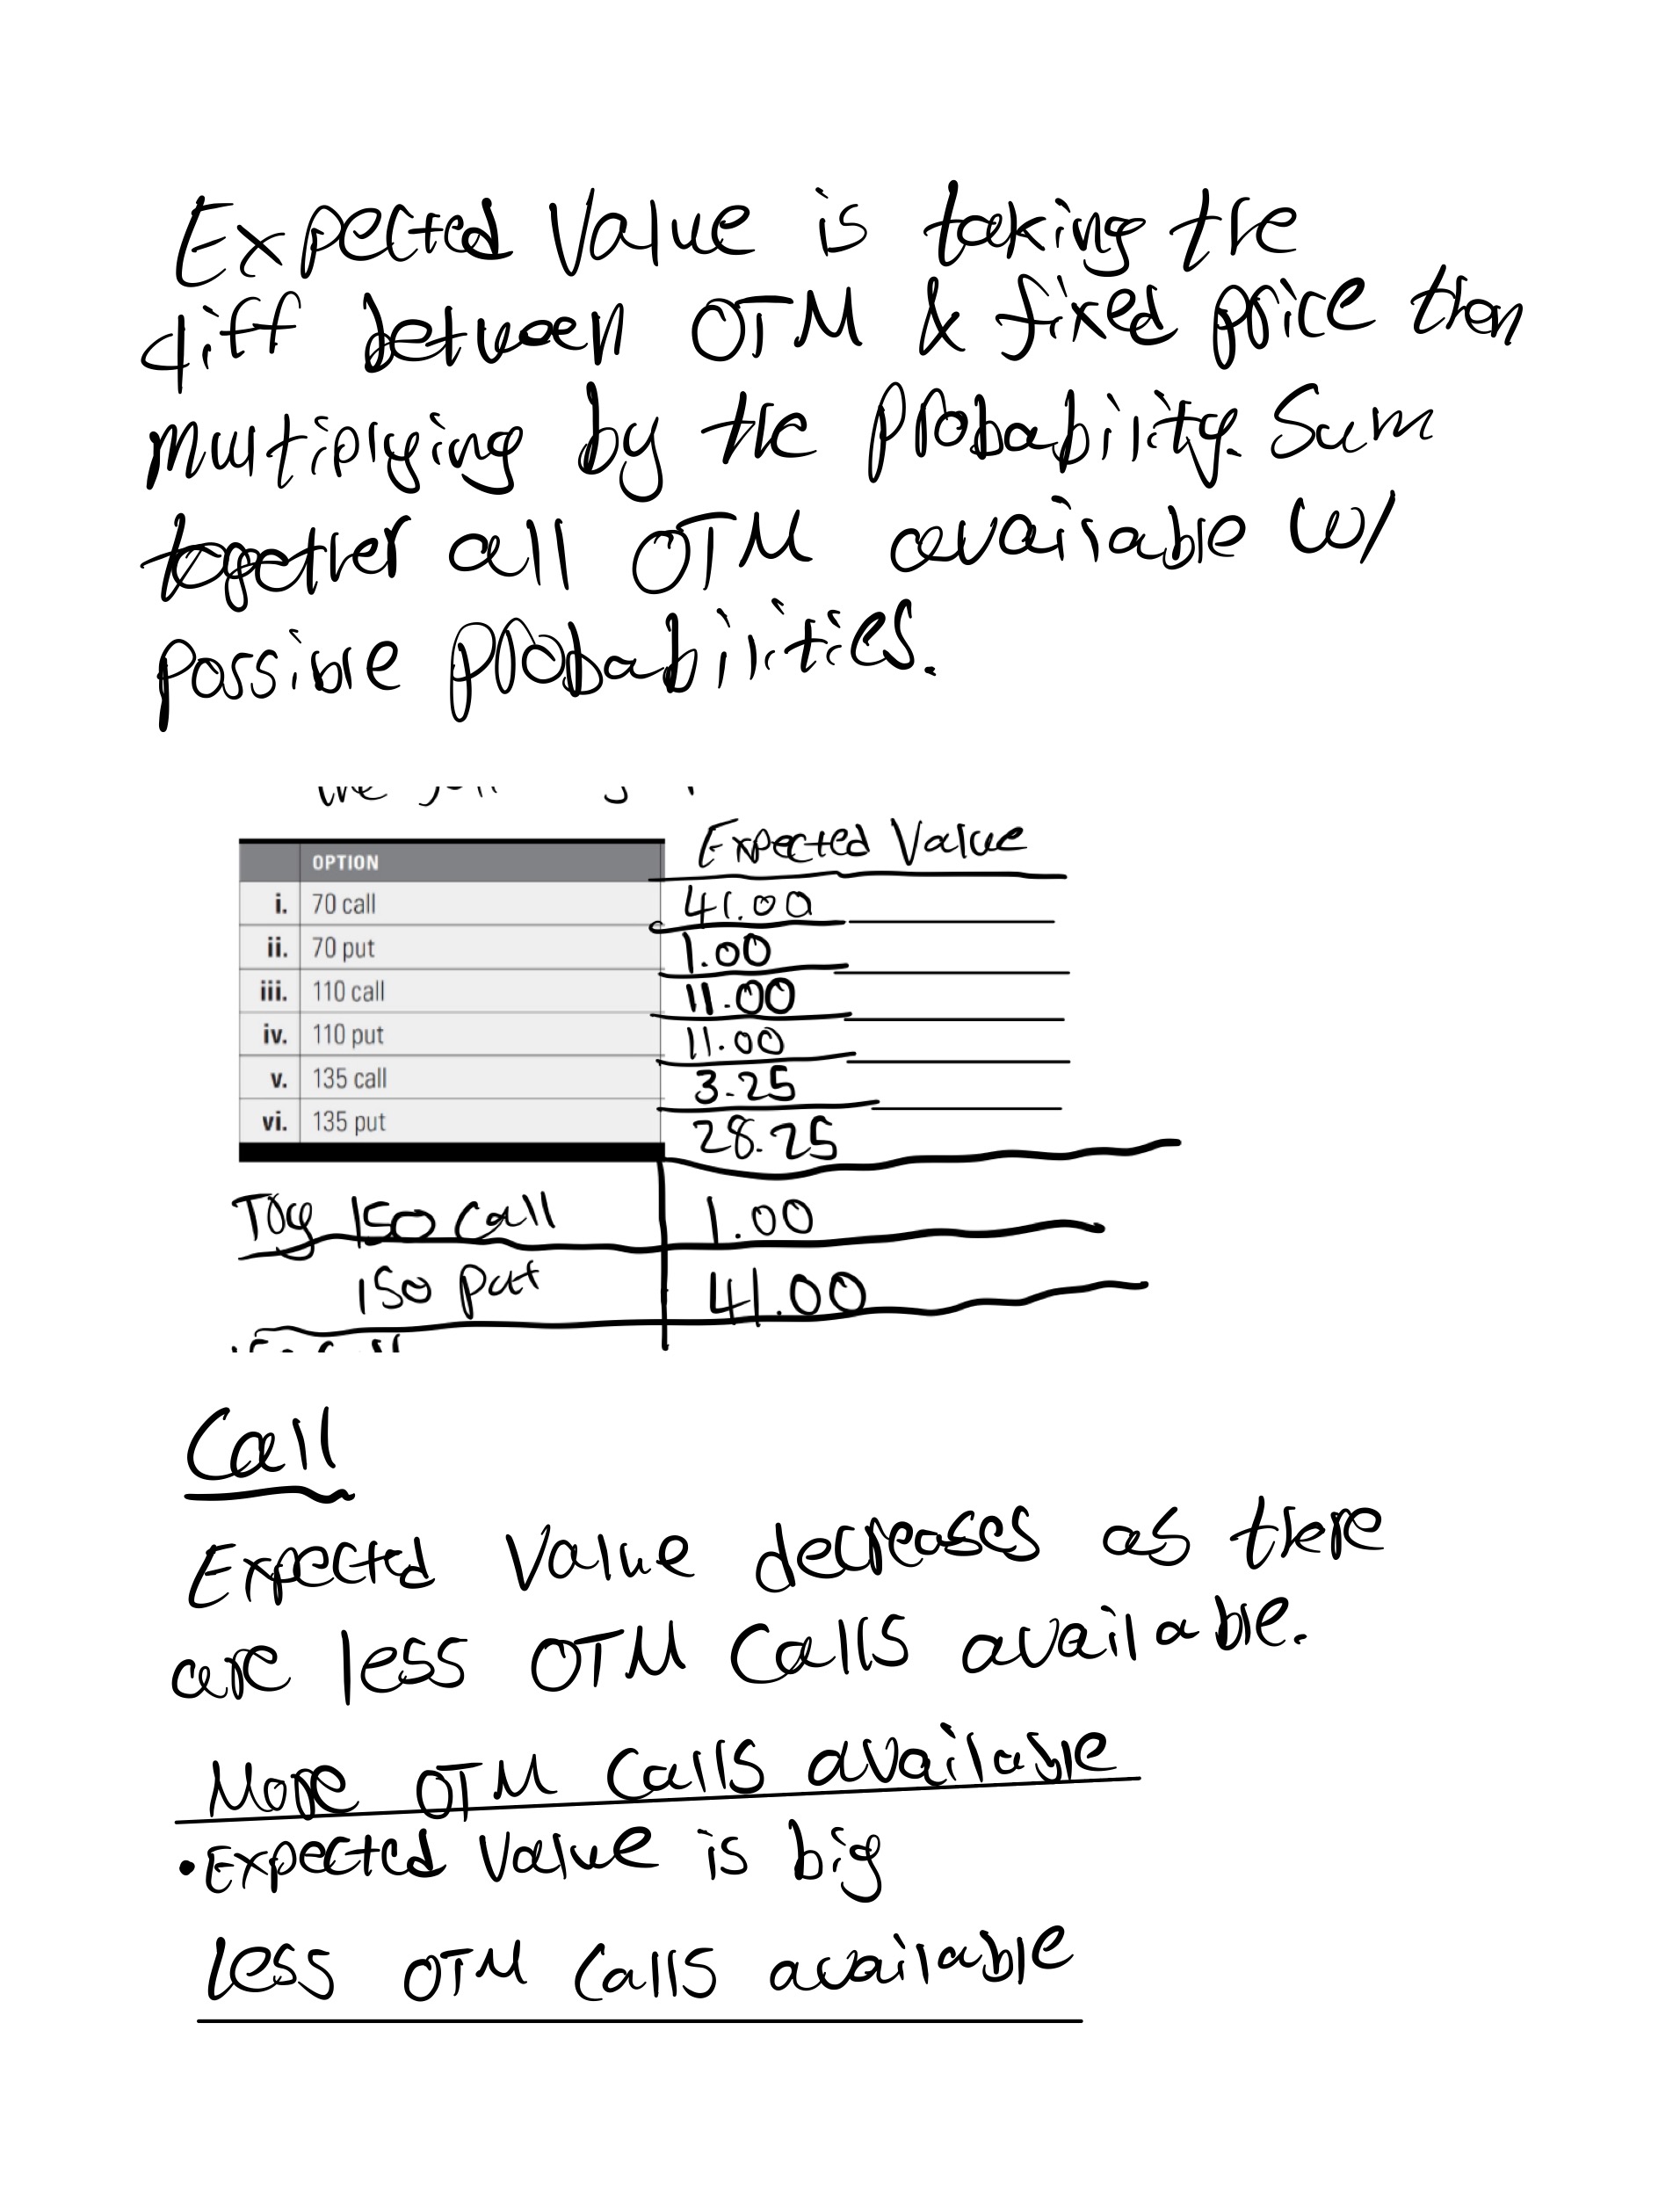 Expected Value is taking the
diff between OTM & fixed price then
multiplying by the probability. Sum
together all OTM available w/
possible probabilities.
OPTION Expected Value
i. 70 call 41.00
ii. 70 put 1.00
iii. 110 call 11.00
iv. 110 put 11.00
v. 135 call 3.25
vi. 135 put 28.25
Try 150 Call 1.00
150 put 41.00
Call
Expected Value decreases as there
are less OTM Calls available.
More OTM Calls available
• Expected value is big
less OTM Calls available